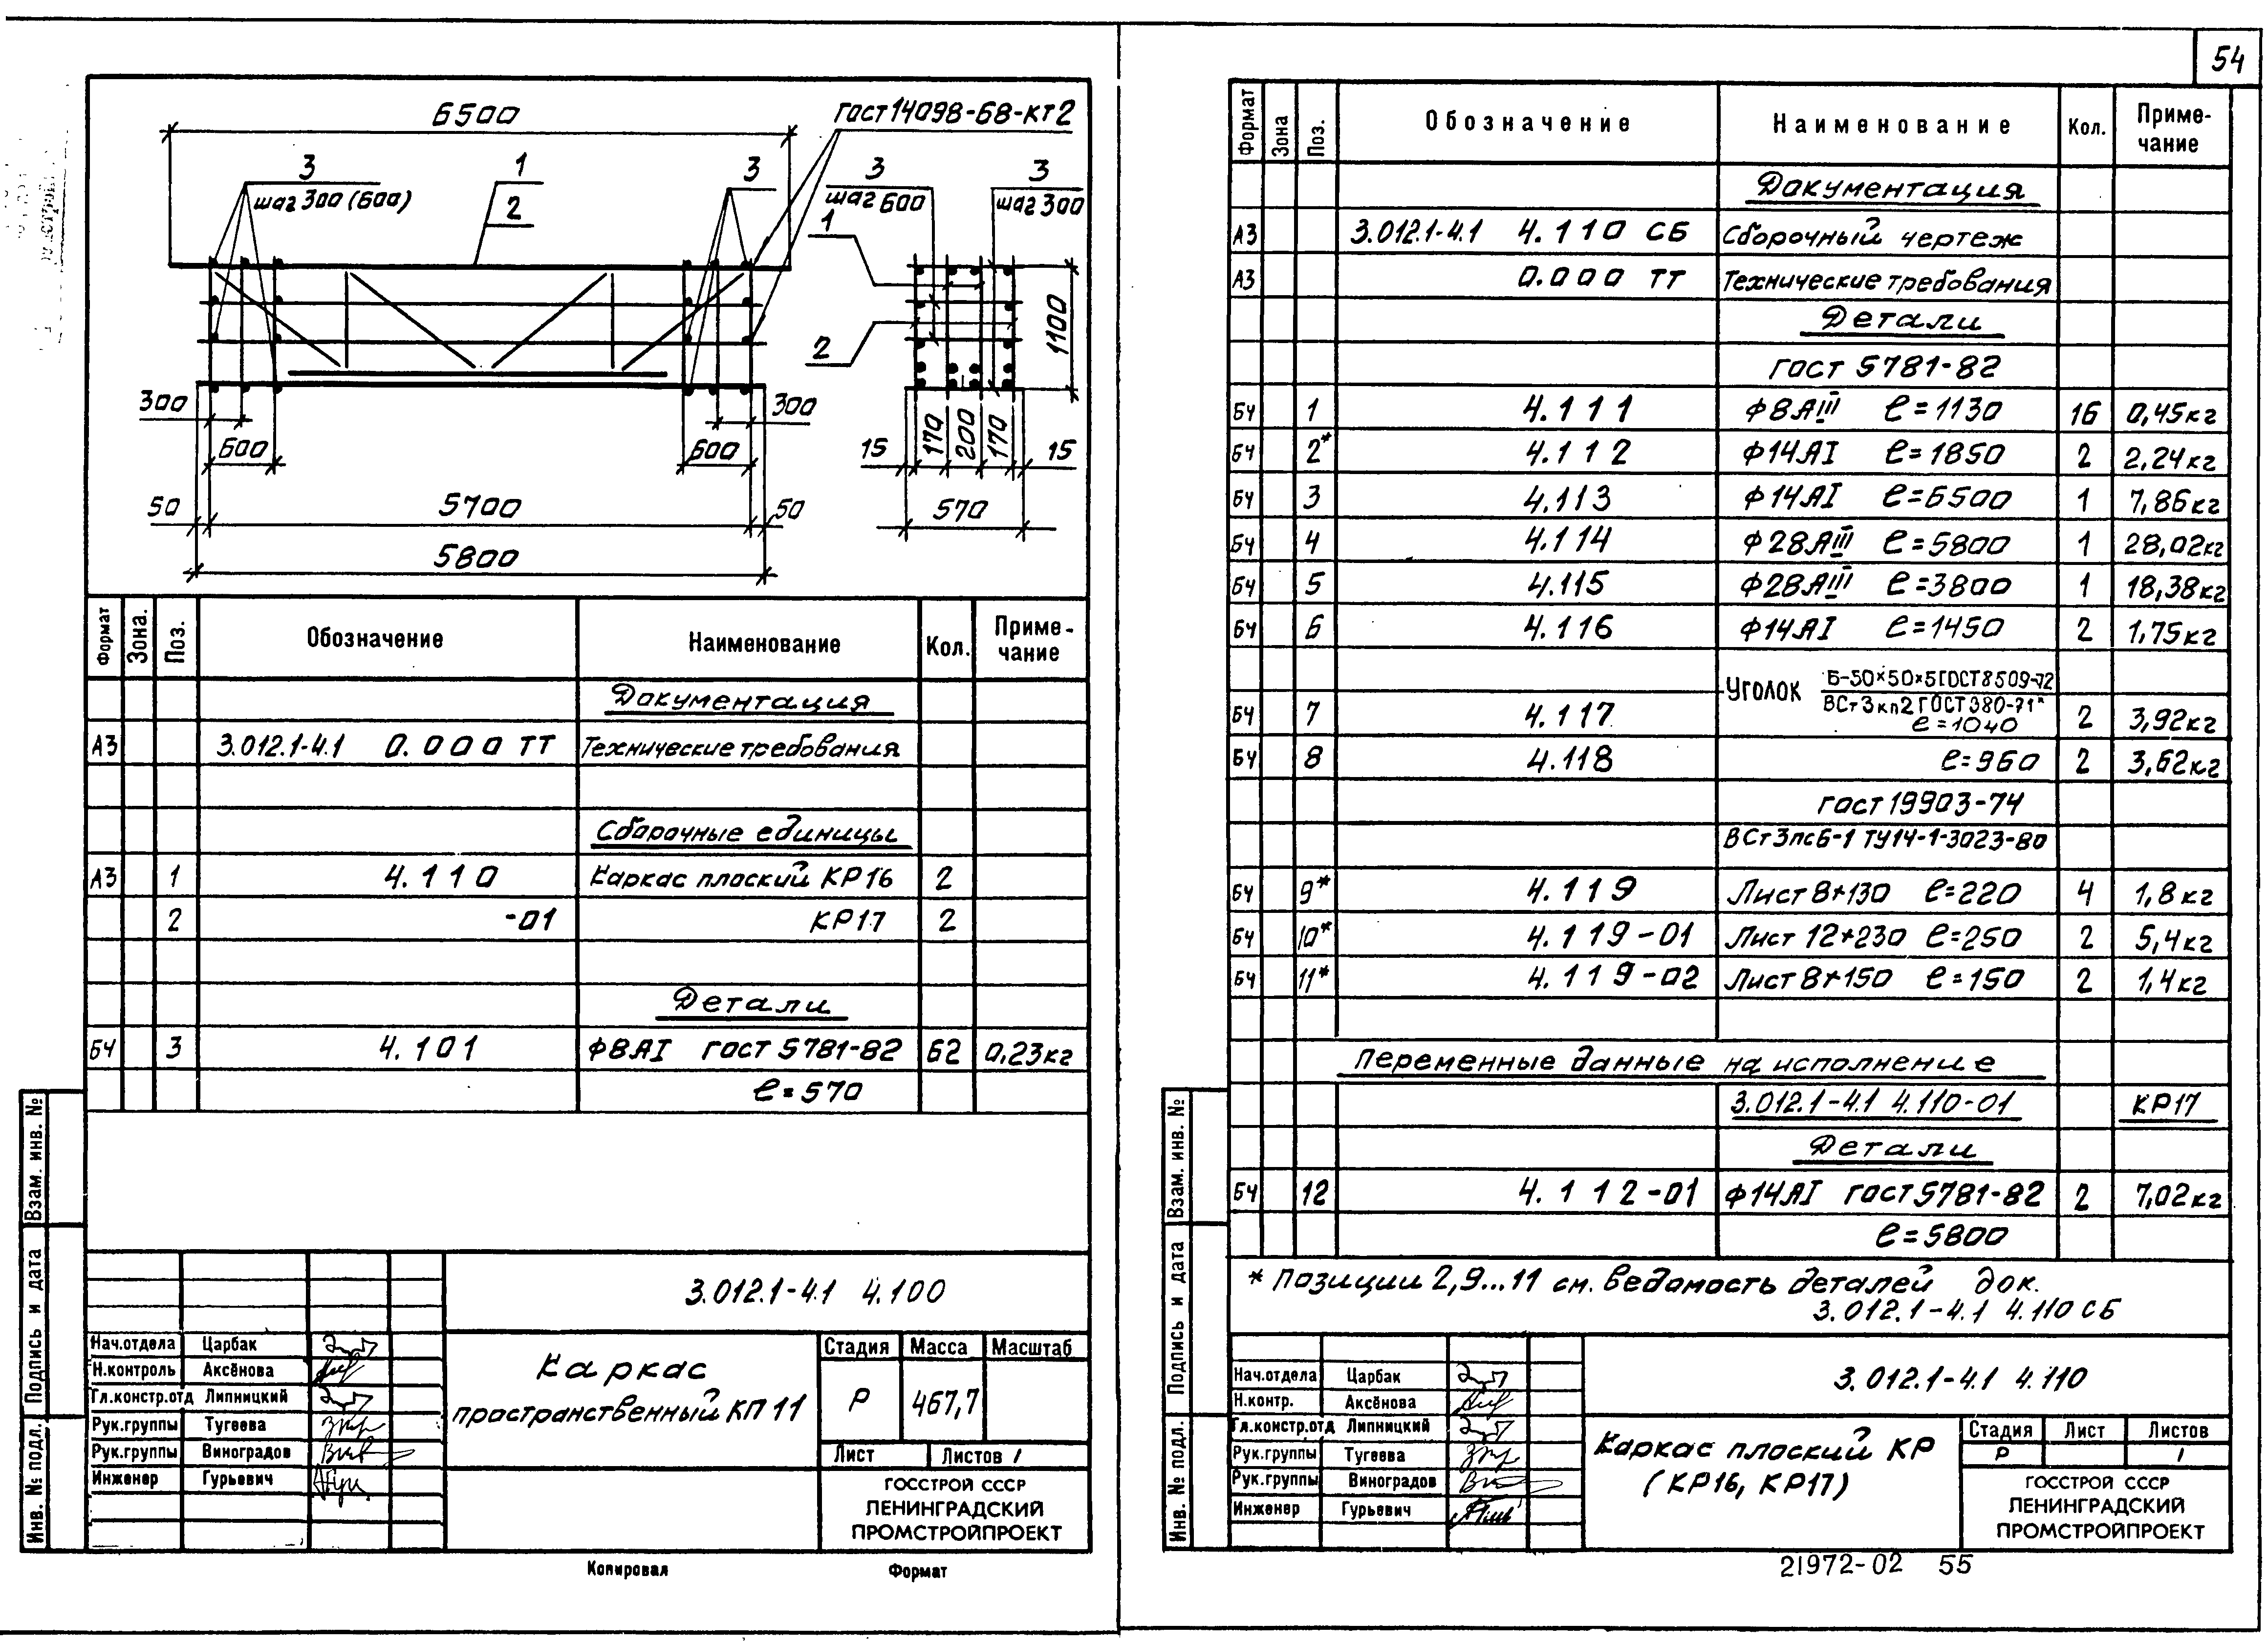 54
6500
ГОСТ 14098-68-КТ2
3
шаг 300 (600)
1
2
3
3
шаг 600
3
шаг 300
1
2
1100
300
600
300
600
15
170
200
170
15
50
5700
50
570
5800
Формат Зона. Поз. Обозначение Наименование Кол. Приме-
чание
Документация
А3 3.012.1-4.1 0.000 ТТ Технические требования
Сборочные единицы
А3 1 4.110 Каркас плоский КР16 2
2 -01 КР17 2
Детали
БЧ 3 4.101 Ф8АI ГОСТ 5781-82 62 0,23кг
ℓ=570
3.012.1-4.1 4.100
Нач.отдела Царбак
Н.контроль Аксёнова
Гл.констр.отд Липницкий
Рук.группы Тугеева
Рук.группы Виноградов
Инженер Гурьевич
Каркас
пространственный КП 11
Стадия Масса Масштаб
Р 467,7
Лист Листов 1
ГОССТРОЙ СССР
ЛЕНИНГРАДСКИЙ
ПРОМСТРОЙПРОЕКТ
Взам. инв. №
Подпись и дата
Инв. № подл.
Копировал Формат
Формат Зона Поз. Обозначение Наименование Кол. Приме-
чание
Документация
А3 3.012.1-4.1 4.110 СБ Сборочный чертеж
А3 0.000 ТТ Технические требования
Детали
ГОСТ 5781-82
БЧ 1 4.111 Ф8АIII ℓ=1130 16 0,45кг
БЧ 2* 4.112 Ф14АI ℓ=1850 2 2,24кг
БЧ 3 4.113 Ф14АI ℓ=6500 1 7,86кг
БЧ 4 4.114 Ф28АIII ℓ=5800 1 28,02кг
БЧ 5 4.115 Ф28АIII ℓ=3800 1 18,38кг
БЧ 6 4.116 Ф14АI ℓ=1450 2 1,75кг
Уголок Б-50×50×5 ГОСТ 8509-72
ВСт3кп2 ГОСТ 380-71*
БЧ 7 4.117 ℓ=1040 2 3,92кг
БЧ 8 4.118 ℓ=960 2 3,62кг
ГОСТ 19903-74
ВСт3пс6-1 ТУ14-1-3023-80
БЧ 9* 4.119 Лист 8×130 ℓ=220 4 1,8кг
БЧ 10* 4.119-01 Лист 12×230 ℓ=250 2 5,4кг
БЧ 11* 4.119-02 Лист 8×150 ℓ=150 2 1,4кг
Переменные данные на исполнение
3.012.1-4.1 4.110-01 КР17
Детали
БЧ 12 4.112-01 Ф14АI ГОСТ 5781-82 2 7,02кг
ℓ=5800
* Позиции 2,9...11 см. ведомость деталей док.
3.012.1-4.1 4.110 СБ
3.012.1-4.1 4.110
Нач.отдела Царбак
Н.контр. Аксёнова
Гл.констр.отд Липницкий
Рук.группы Тугеева
Рук.группы Виноградов
Инженер Гурьевич
Каркас плоский КР
(КР16, КР17)
Стадия Лист Листов
Р 1
ГОССТРОЙ СССР
ЛЕНИНГРАДСКИЙ
ПРОМСТРОЙПРОЕКТ
Взам. инв. №
Подпись и дата
Инв. № подл.
21972-02 55